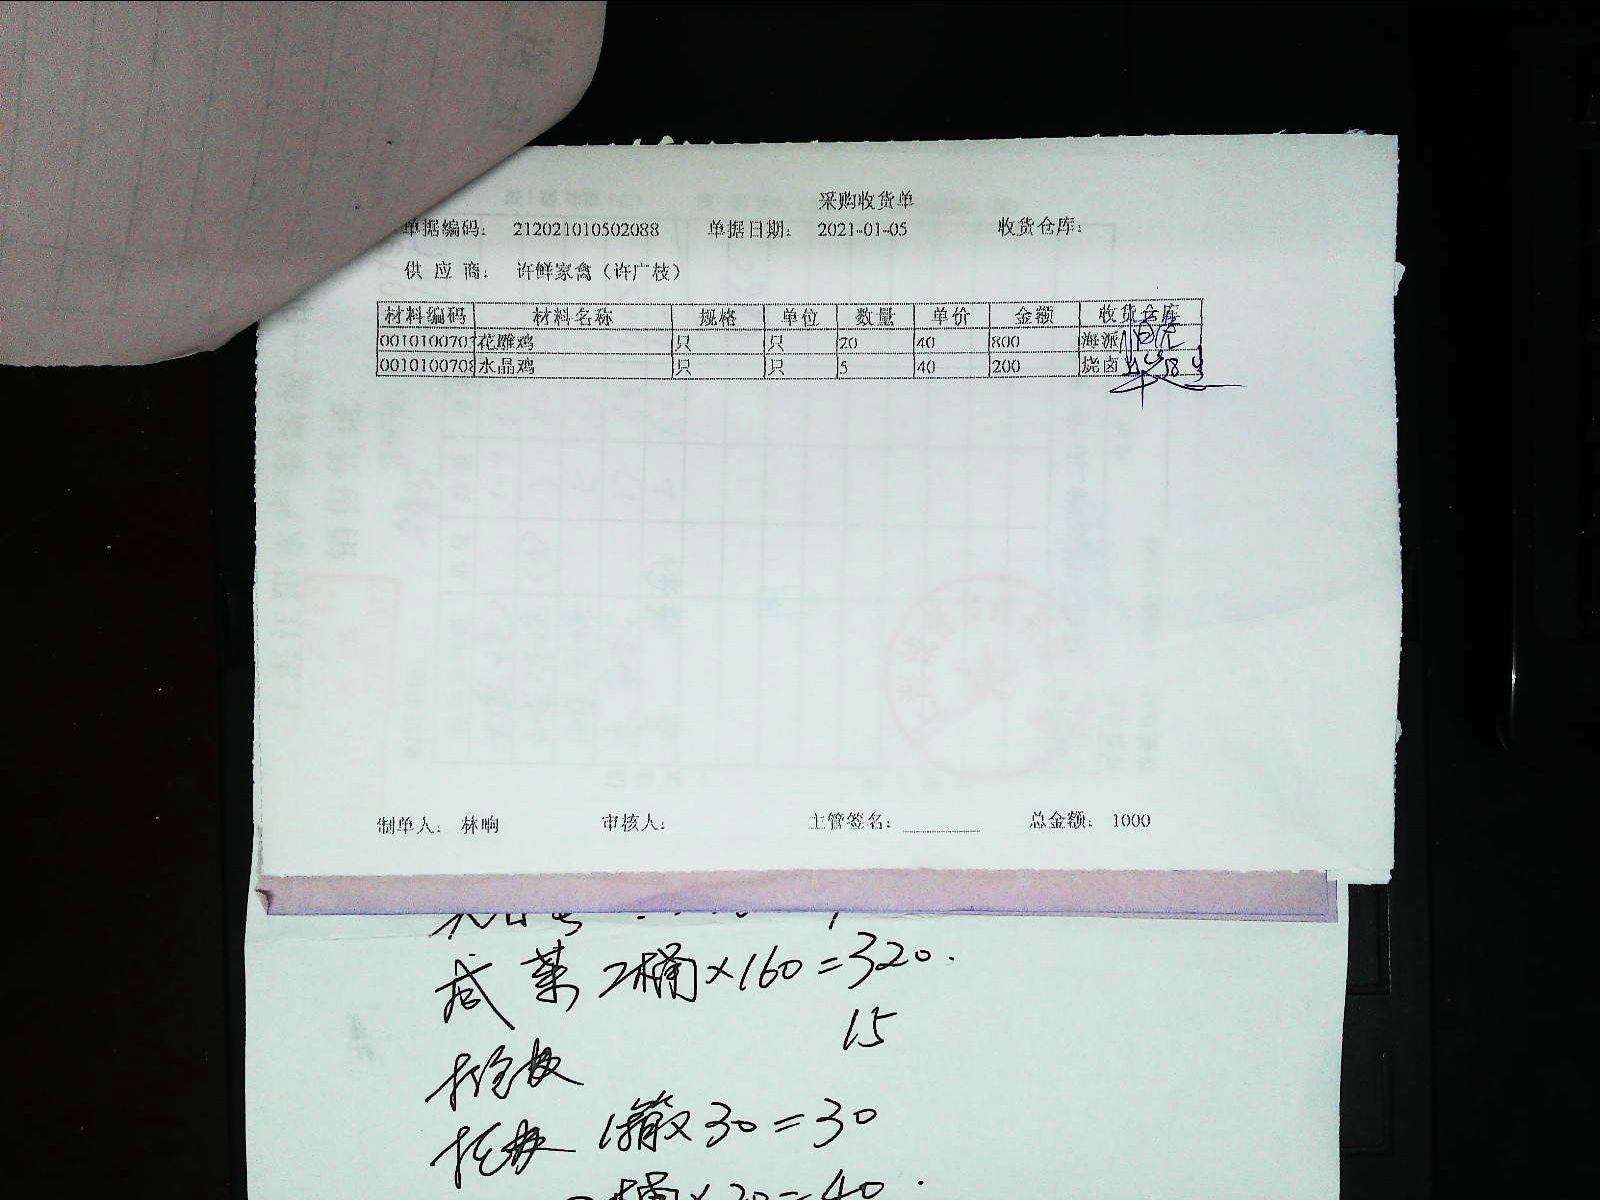 采购收货单
单据编码： 212021010502088 单据日期： 2021-01-05 收货仓库：
供 应 商： 许鲜家禽（许广枝）
材料编码 材料名称 规格 单位 数量 单价 金额 收货仓库
0010100707 花雕鸡 只 只 20 40 800 海派
0010100708 水晶鸡 只 只 5 40 200 烧卤
制单人： 林响 审核人： 主管签名： 总金额： 1000
咸菜 2桶×160=320.
15
30=30
2桶×20=40.